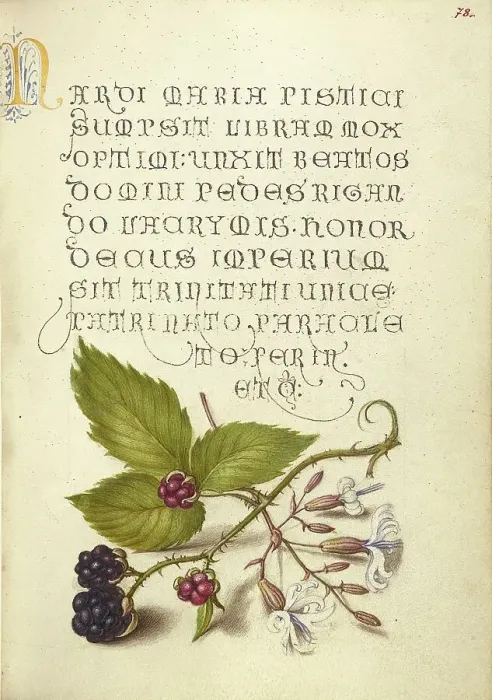 78.
NARDI MARIA PISTICI
SUMPSIT LIBRAM MOX
OPTIMI: UNXIT BEATOS
DOMINI PEDES RIGAN
DO LACRYMIS. HONOR
DECUS IMPERIUM
SIT TRINITATI UNICAE
PATRI NATO PARACLE
TO. PER IN.
ET Q: